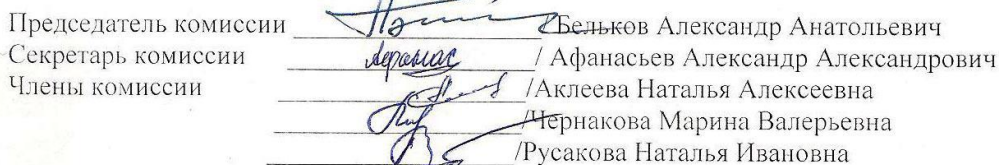 Председатель комиссии /Бельков Александр Анатольевич
Секретарь комиссии / Афанасьев Александр Александрович
Члены комиссии /Аклеева Наталья Алексеевна
/Чернакова Марина Валерьевна
/Русакова Наталья Ивановна